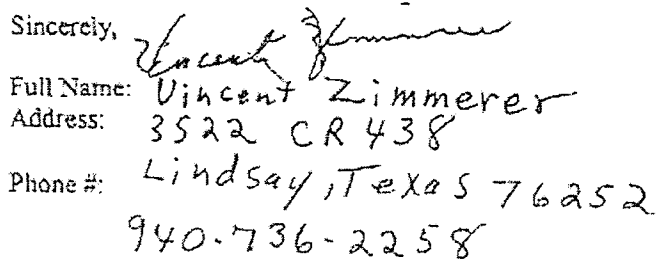 Sincerely, Vincent Zimmerer
Full Name: Vincent Zimmerer
Address: 3522 CR 438
Phone #: Lindsay, Texas 76252
940-736-2258